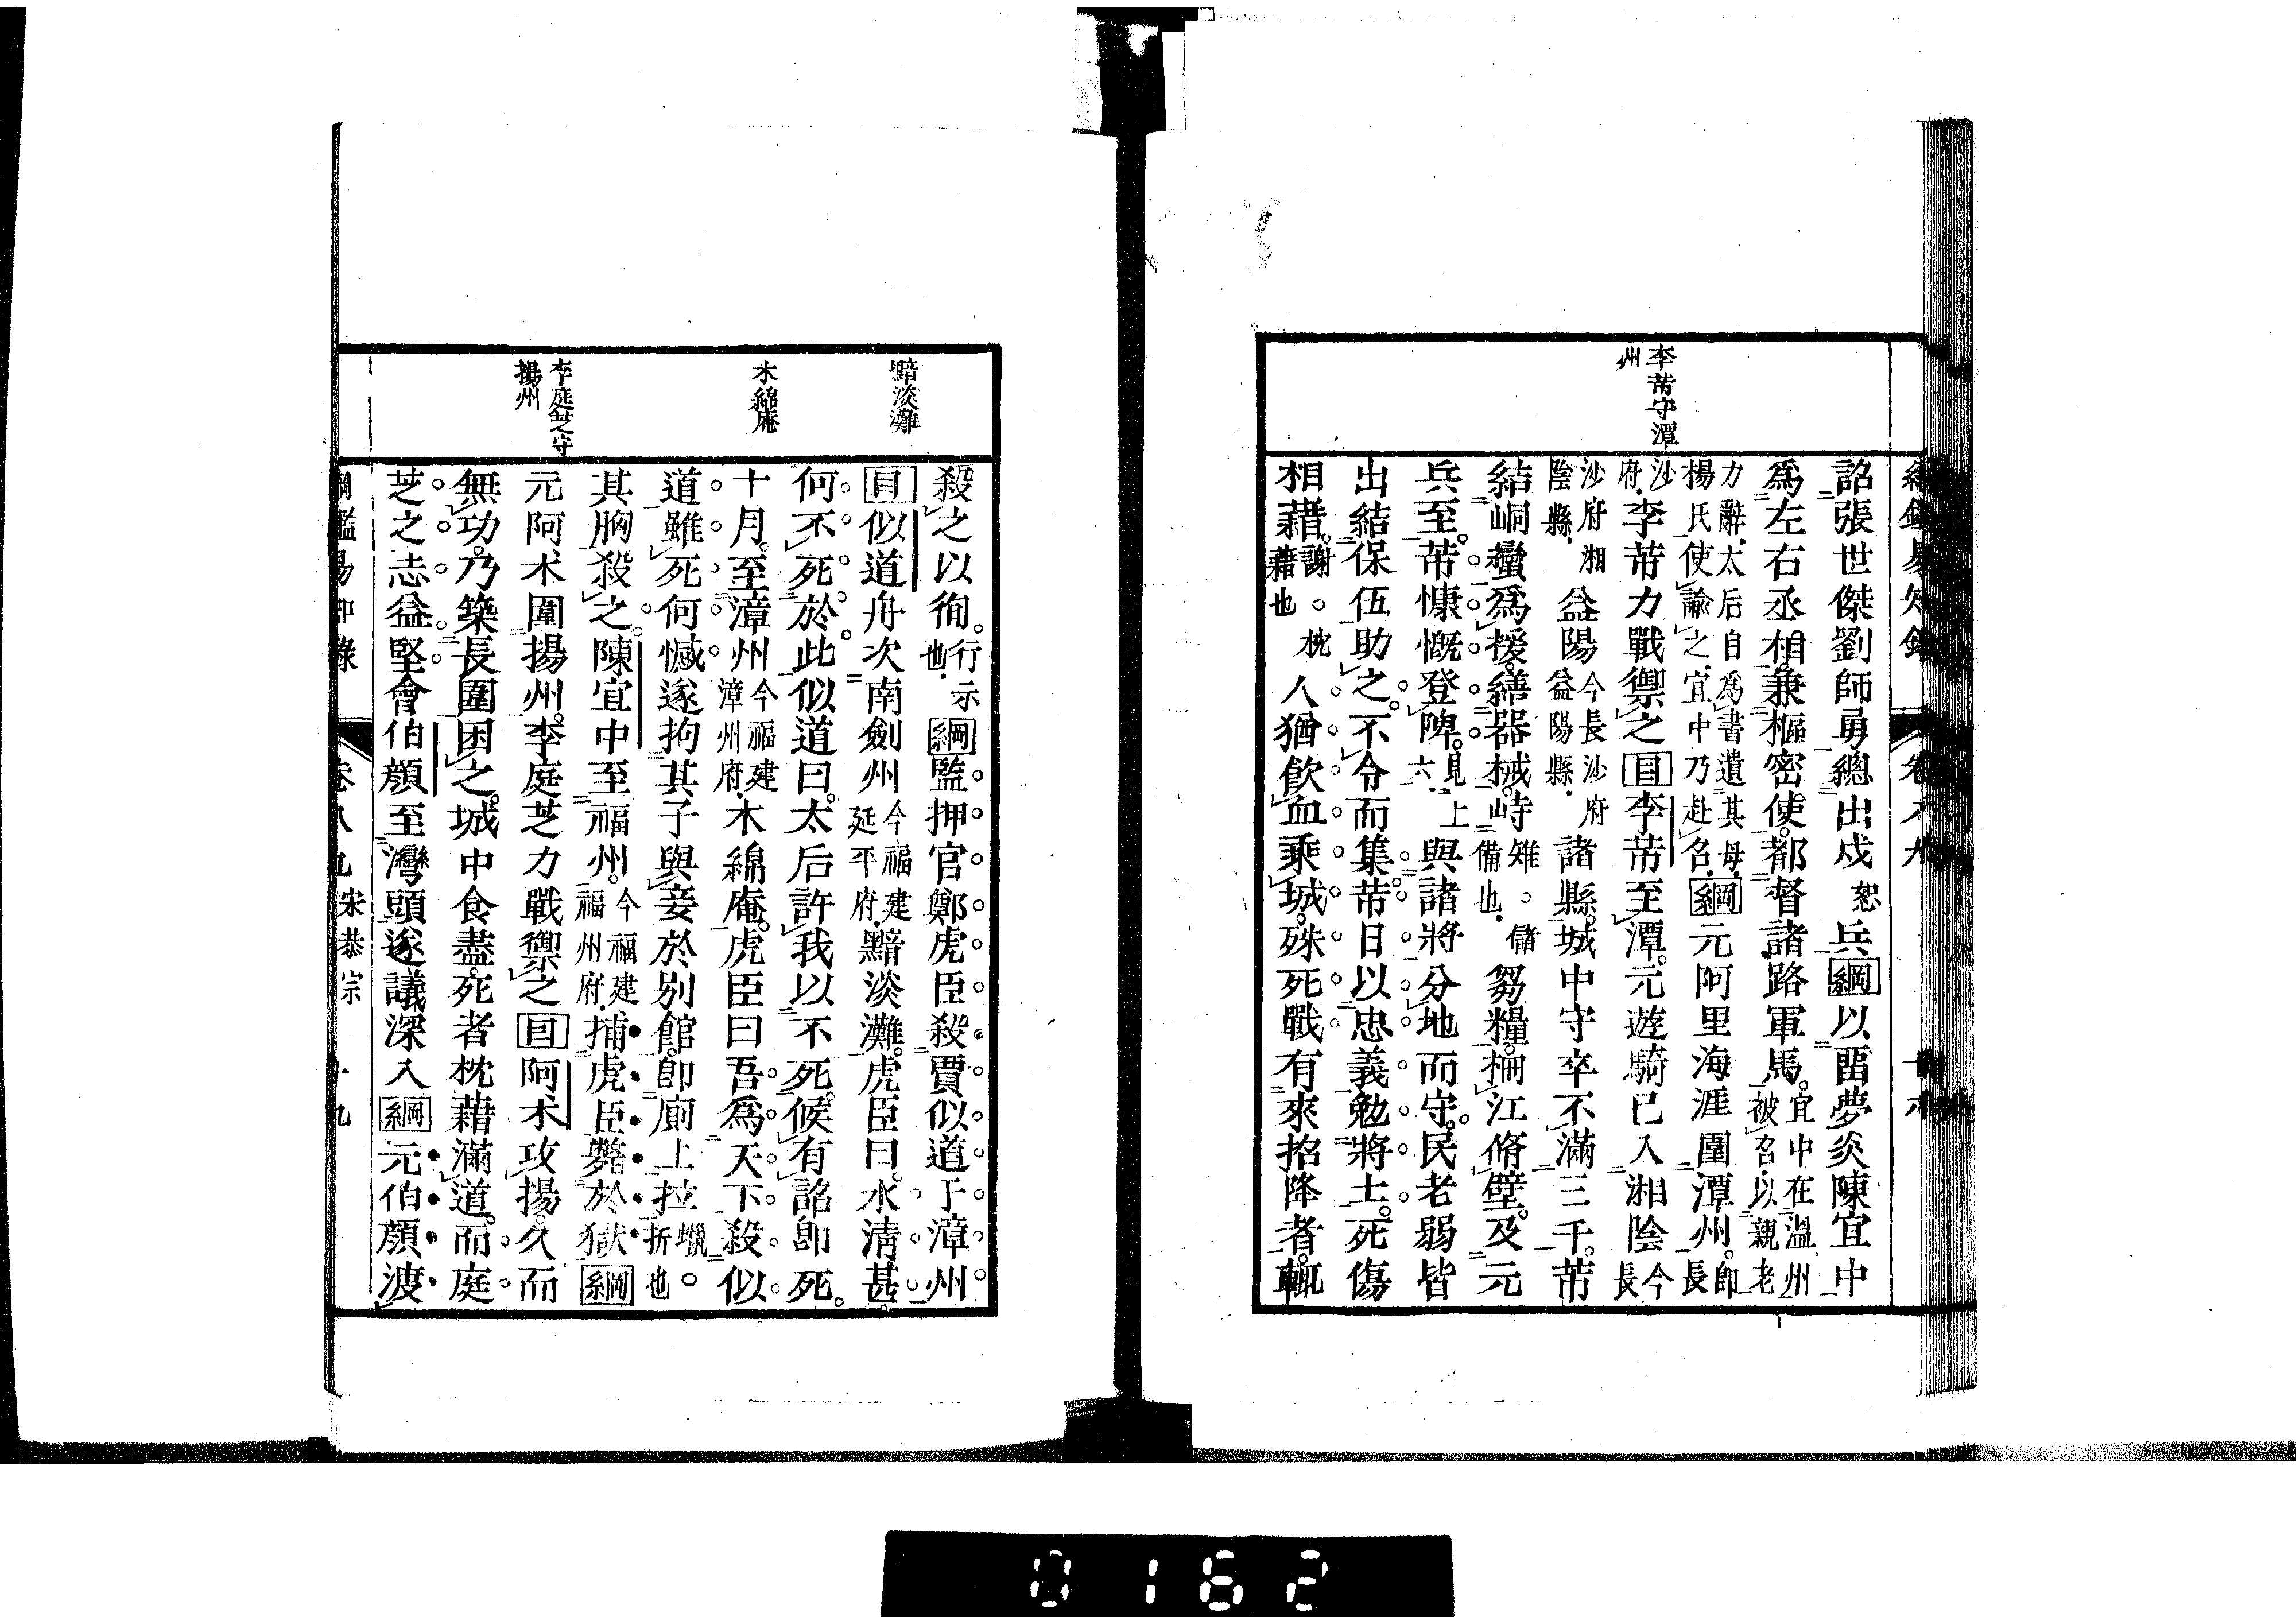 李芾守潭
州
詔張世傑劉師勇總出戍恕兵綱以畱夢炎陳宜中
爲左右丞相兼樞密使都督諸路軍馬宜中在溫州被召以親老
力辭太后自爲書遺其母楊氏使諭之宜中乃赴召綱元阿里海涯圍潭州卽長
沙府李芾力戰禦之目李芾至潭元遊騎已入湘陰今長
沙府湘陰縣益陽今長沙府益陽縣諸縣城中守卒不滿三千芾
結峒蠻爲援繕器械峙雉。儲備也芻糧柵江脩壁及元
兵至芾慷慨登陴見上六與諸將分地而守民老弱皆
出結保伍助之不令而集芾日以忠義勉將士死傷
相藉謝。枕藉也人猶飲血乘城殊死戰有來招降者輒
黯淡灘
木綿庵
李庭芝守
揚州
殺之以徇行示也綱監押官鄭虎臣殺賈似道于漳州
目似道舟次南劍州今福建延平府黯淡灘虎臣曰水淸甚
何不死於此似道曰太后許我以不死候有詔卽死
十月至漳州今福建漳州府木綿庵虎臣曰吾爲天下殺似
道雖死何憾遂拘其子與妾於別館卽廁上拉蠟。折也
其胸殺之陳宜中至福州今福建福州府捕虎臣斃於獄綱
元阿朮圍揚州李庭芝力戰禦之目阿朮攻揚久而
無功乃築長圍困之城中食盡死者枕藉滿道而庭
芝之志益堅會伯顔至灣頭遂議深入綱元伯顔渡
綱鑑易知錄 卷八九 宋恭宗 十九
0162